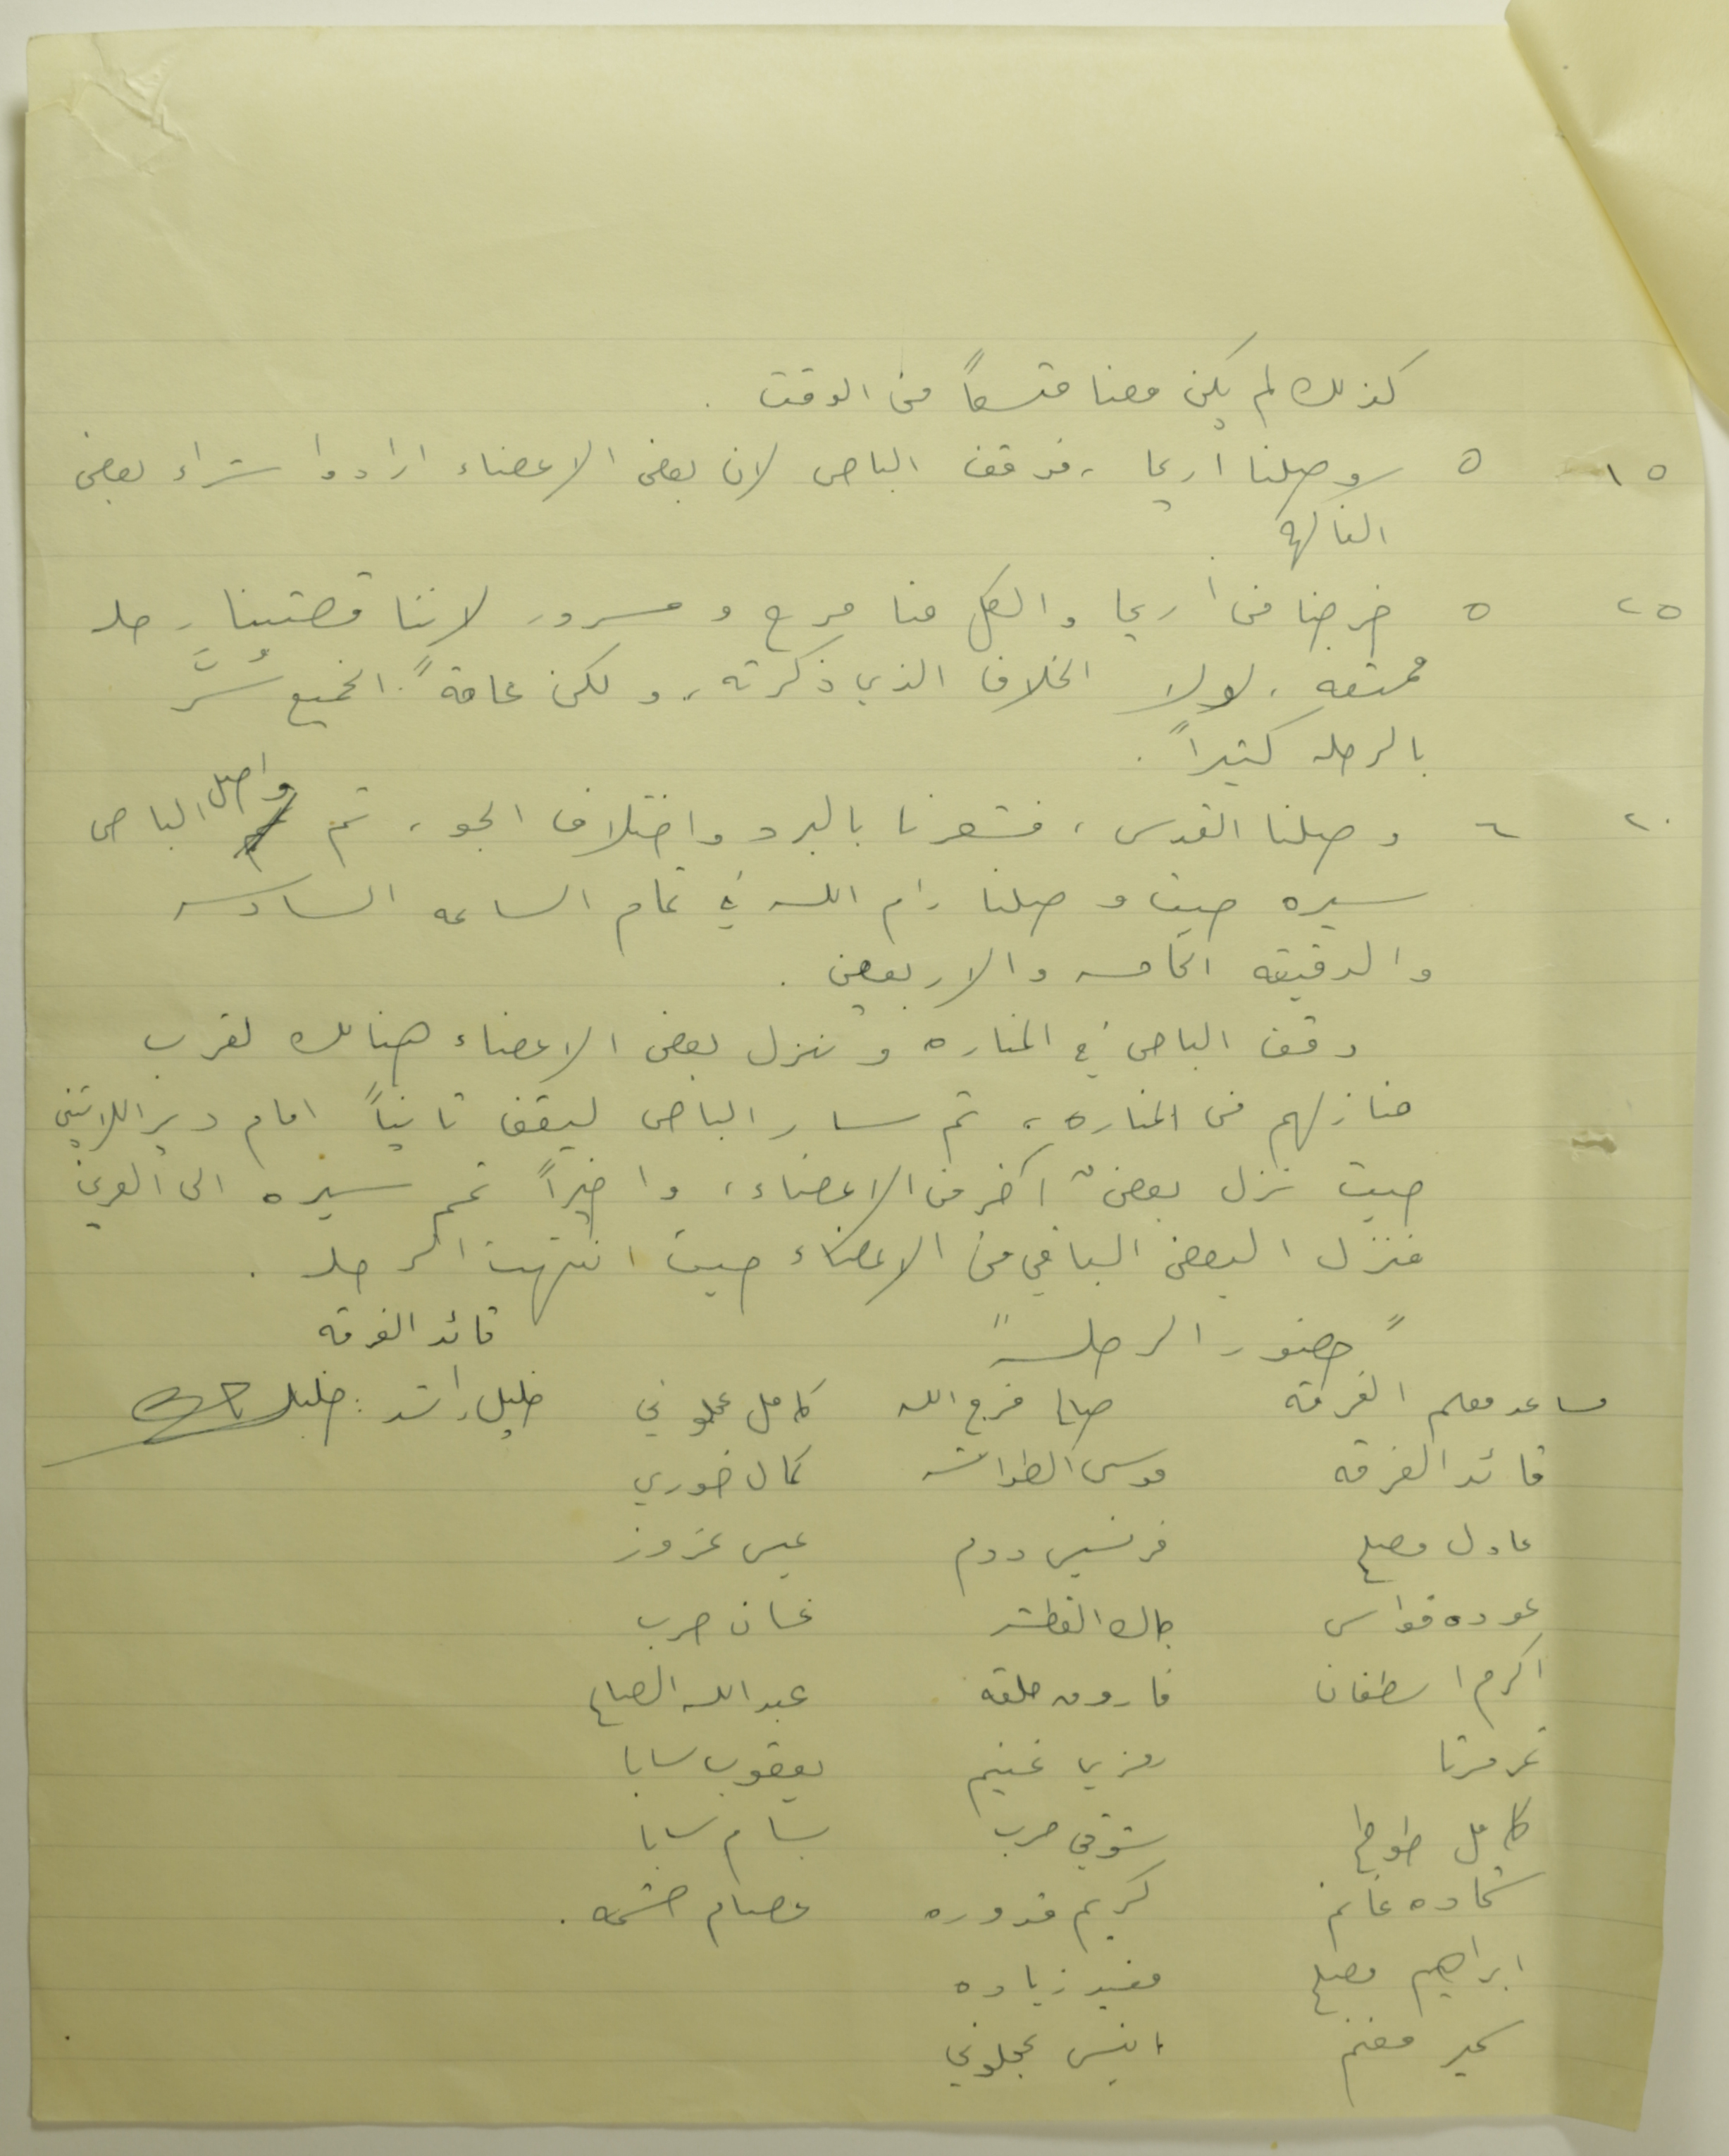 كذلك لم يكن معنا متسعاً من الوقت .
١٥ ٥ وصلنا اريحا ، فوقف الباص لان بعض الاعضاء ارادوا شراء بعض
الفاكهة
٢٥ ٥ خرجنا من أريحا والكل منا مرح و مسرور لاننا قضينا رحله
ممتعه ، لولا الخلاف الذي ذكرته ، ولكن عامةً الجميع سُرَّ
بالرحله كثيراً .
٢٠ ٦ وصلنا القدس ، فشعرنا بالبرد واختلاف الجو ، ثم واصل الباص
سيره حيث وصلنا رام الله في تمام الساعه السادسه
والدقيقه الخامسه والاربعين .
وقف الباص في المناره ونزل بعض الاعضاء هنالك لقرب
منازلهم من المناره ، ثم سار الباص ليقف ثانياً امام دير اللاتين
حيث نزل بعض آخر من الاعضاء ، واخيراً تمم سيره الى العرين
فنزل البعض الباقي من الاعضاء حيث انتهت الرحله .
" حضور الرحله " قائد الفرقه
مساعد معلم الفرقه صالح فرج الله كامل عجلوني خليل راشد : خليل
قائد الفرقه موسى الطواشه كمال خوري
عادل مصلح فرنسيس دودم عيسى عزوز
عوده قواس جاك القطشه غسان حرب
اكرم اسطفان فاروق حلقه عبدالله الصالح
رمزي غنيم يعقوب سابا
كامل طوطح شوقي حرب بسام سابا
شحاده غانم كريم قدوره عصام حشمه .
ابراهيم مصلح مفيد زياده
سمير مغنم انيس عجلوني